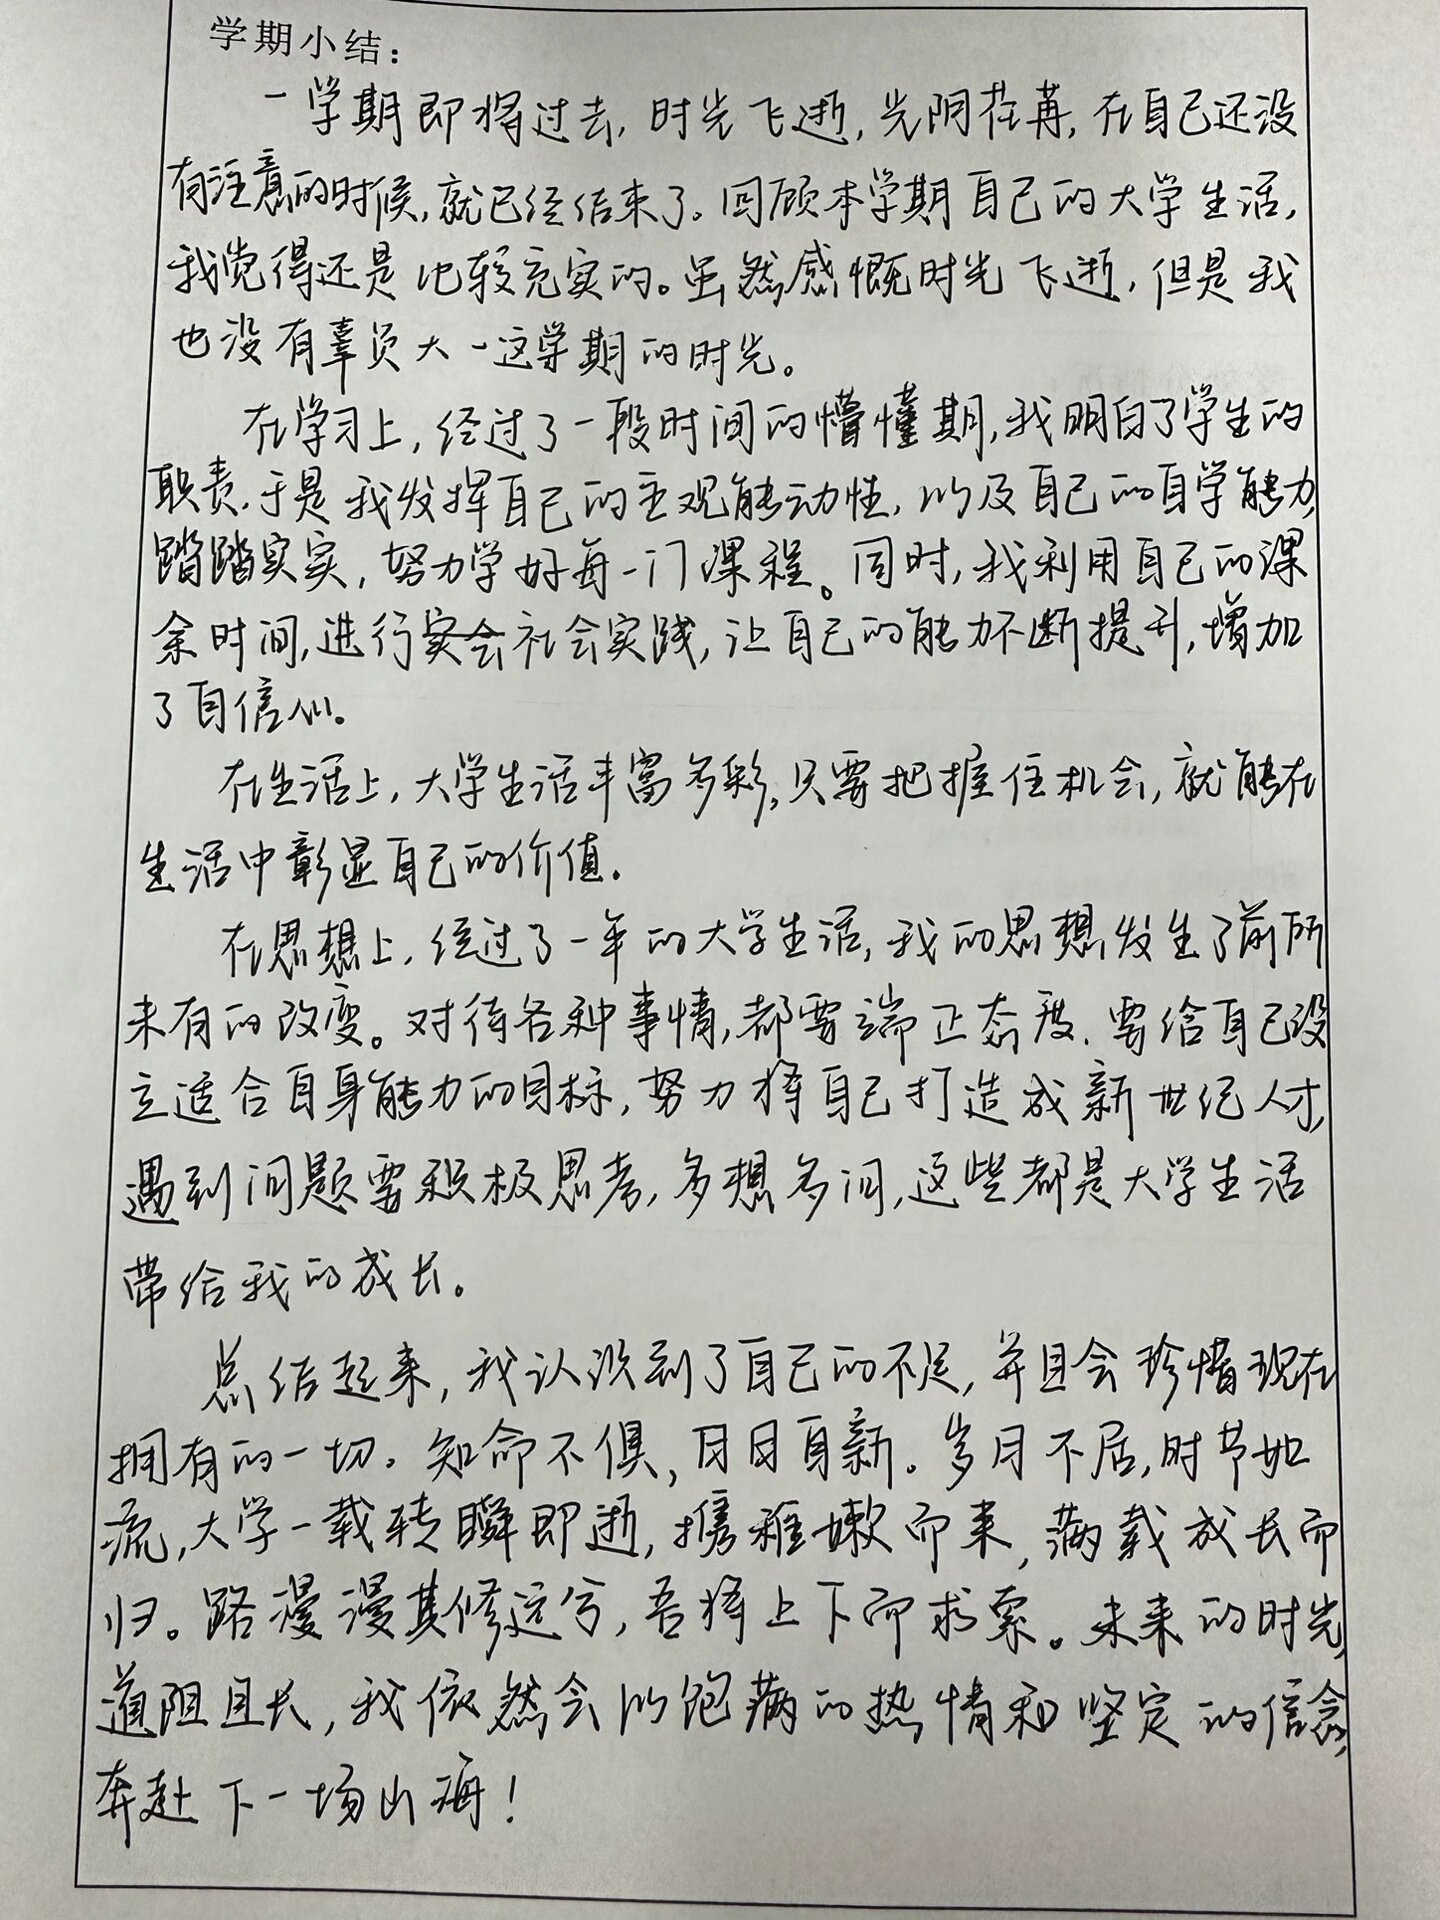 学期小结：
一学期即将过去，时光飞逝，光阴荏苒，在自己还没
有注意的时候，就已经结束了。回顾本学期自己的大学生活，
我觉得还是比较充实的。虽然感慨时光飞逝，但是我
也没有辜负大一这学期的时光。
在学习上，经过了一段时间的懵懂期，我明白了学生的
职责，于是我发挥自己的主观能动性，以及自己的自学能力，
踏踏实实，努力学好每一门课程。同时，我利用自己的课
余时间，进行实会社会实践，让自己的能力不断提升，增加
了自信心。
在生活上，大学生活丰富多彩，只要把握住机会，就能在
生活中彰显自己的价值．
在思想上，经过了一年的大学生活，我的思想发生了前所
未有的改变。对待各种事情，都要端正态度、要给自己设
立适合自身能力的目标，努力将自己打造成新世纪人才，
遇到问题要积极思考，多想多问，这些都是大学生活
带给我的成长。
总结起来，我认识到了自己的不足，并且会珍惜现在
拥有的一切．知命不惧，日日自新。岁月不居，时节如
流，大学一载转瞬即逝，携稚嫩而来，满载成长而
归。路漫漫其修远兮，吾将上下而求索。未来的时光，
道阻且长，我依然会以饱满的热情和坚定的信念，
奔赴下一场山海！